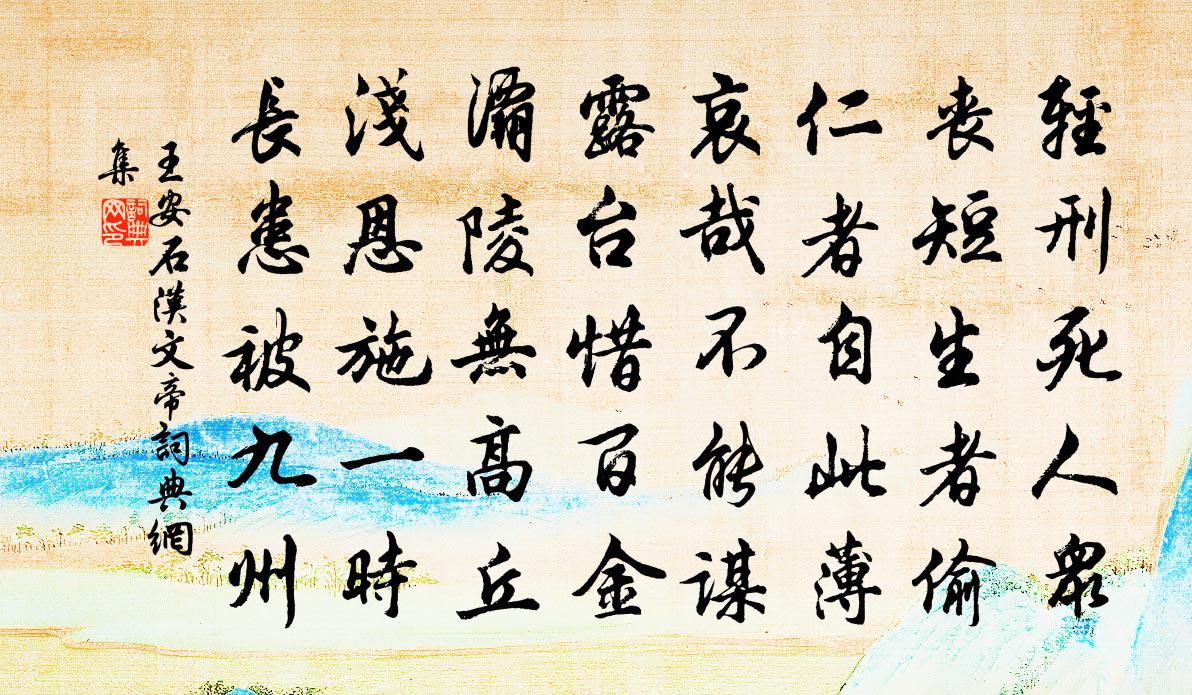 輕刑死人眾
喪短生者偷
仁者自此薄
哀哉不能謀
露台惜百金
灞陵無高丘
淺恩施一時
長患被九州
王安石漢文帝詞典網
集
詞典
网